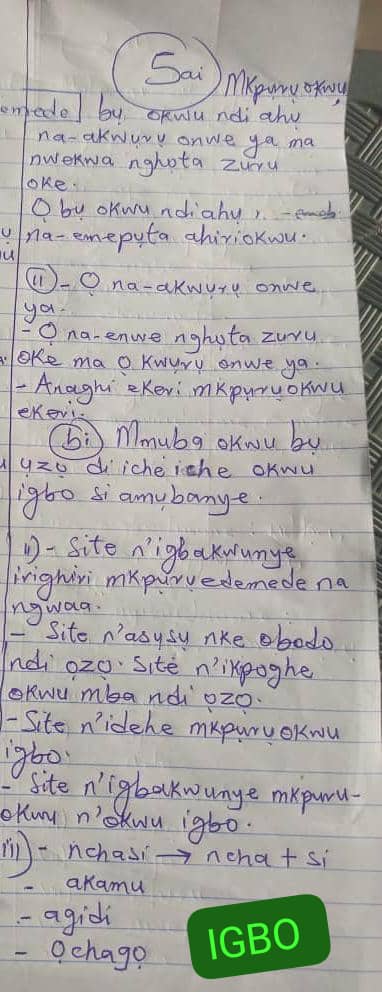 5ai) Mkpụrụ okwu
emede by okwu ndi ahụ
na-akwụrụ onwe ya ma
nwekwa nghọta zuru
oke.
Ọ bụ okwu ndiahụ,
na-emepụta ahiriokwu.
(ii) - Ọ na-akwụrụ onwe
ya.
- Ọ na-enwe nghọta zuru
oke ma ọ kwụrụ onwe ya.
- Anaghi ekeri mkpụrụokwu
ekeri.
(bi) Mmụba okwu bụ
ụzọ di icheiche okwu
igbo si amụbanye.
ii) - Site n'igbakwunye
irighiri mkpụrụedemede na
ngwaa.
- Site n'asụsụ nke obodo
ndi ọzọ. Site n'ikpoghe
okwu mba ndi ọzọ.
- Site n'idehe mkpụrụokwu
igbo.
- Site n'igbakwunye mkpuru-
okwu n'okwu igbo.
iii) - nchasi → ncha + si
- akamu
- agidi
- Ọchagọ
IGBO